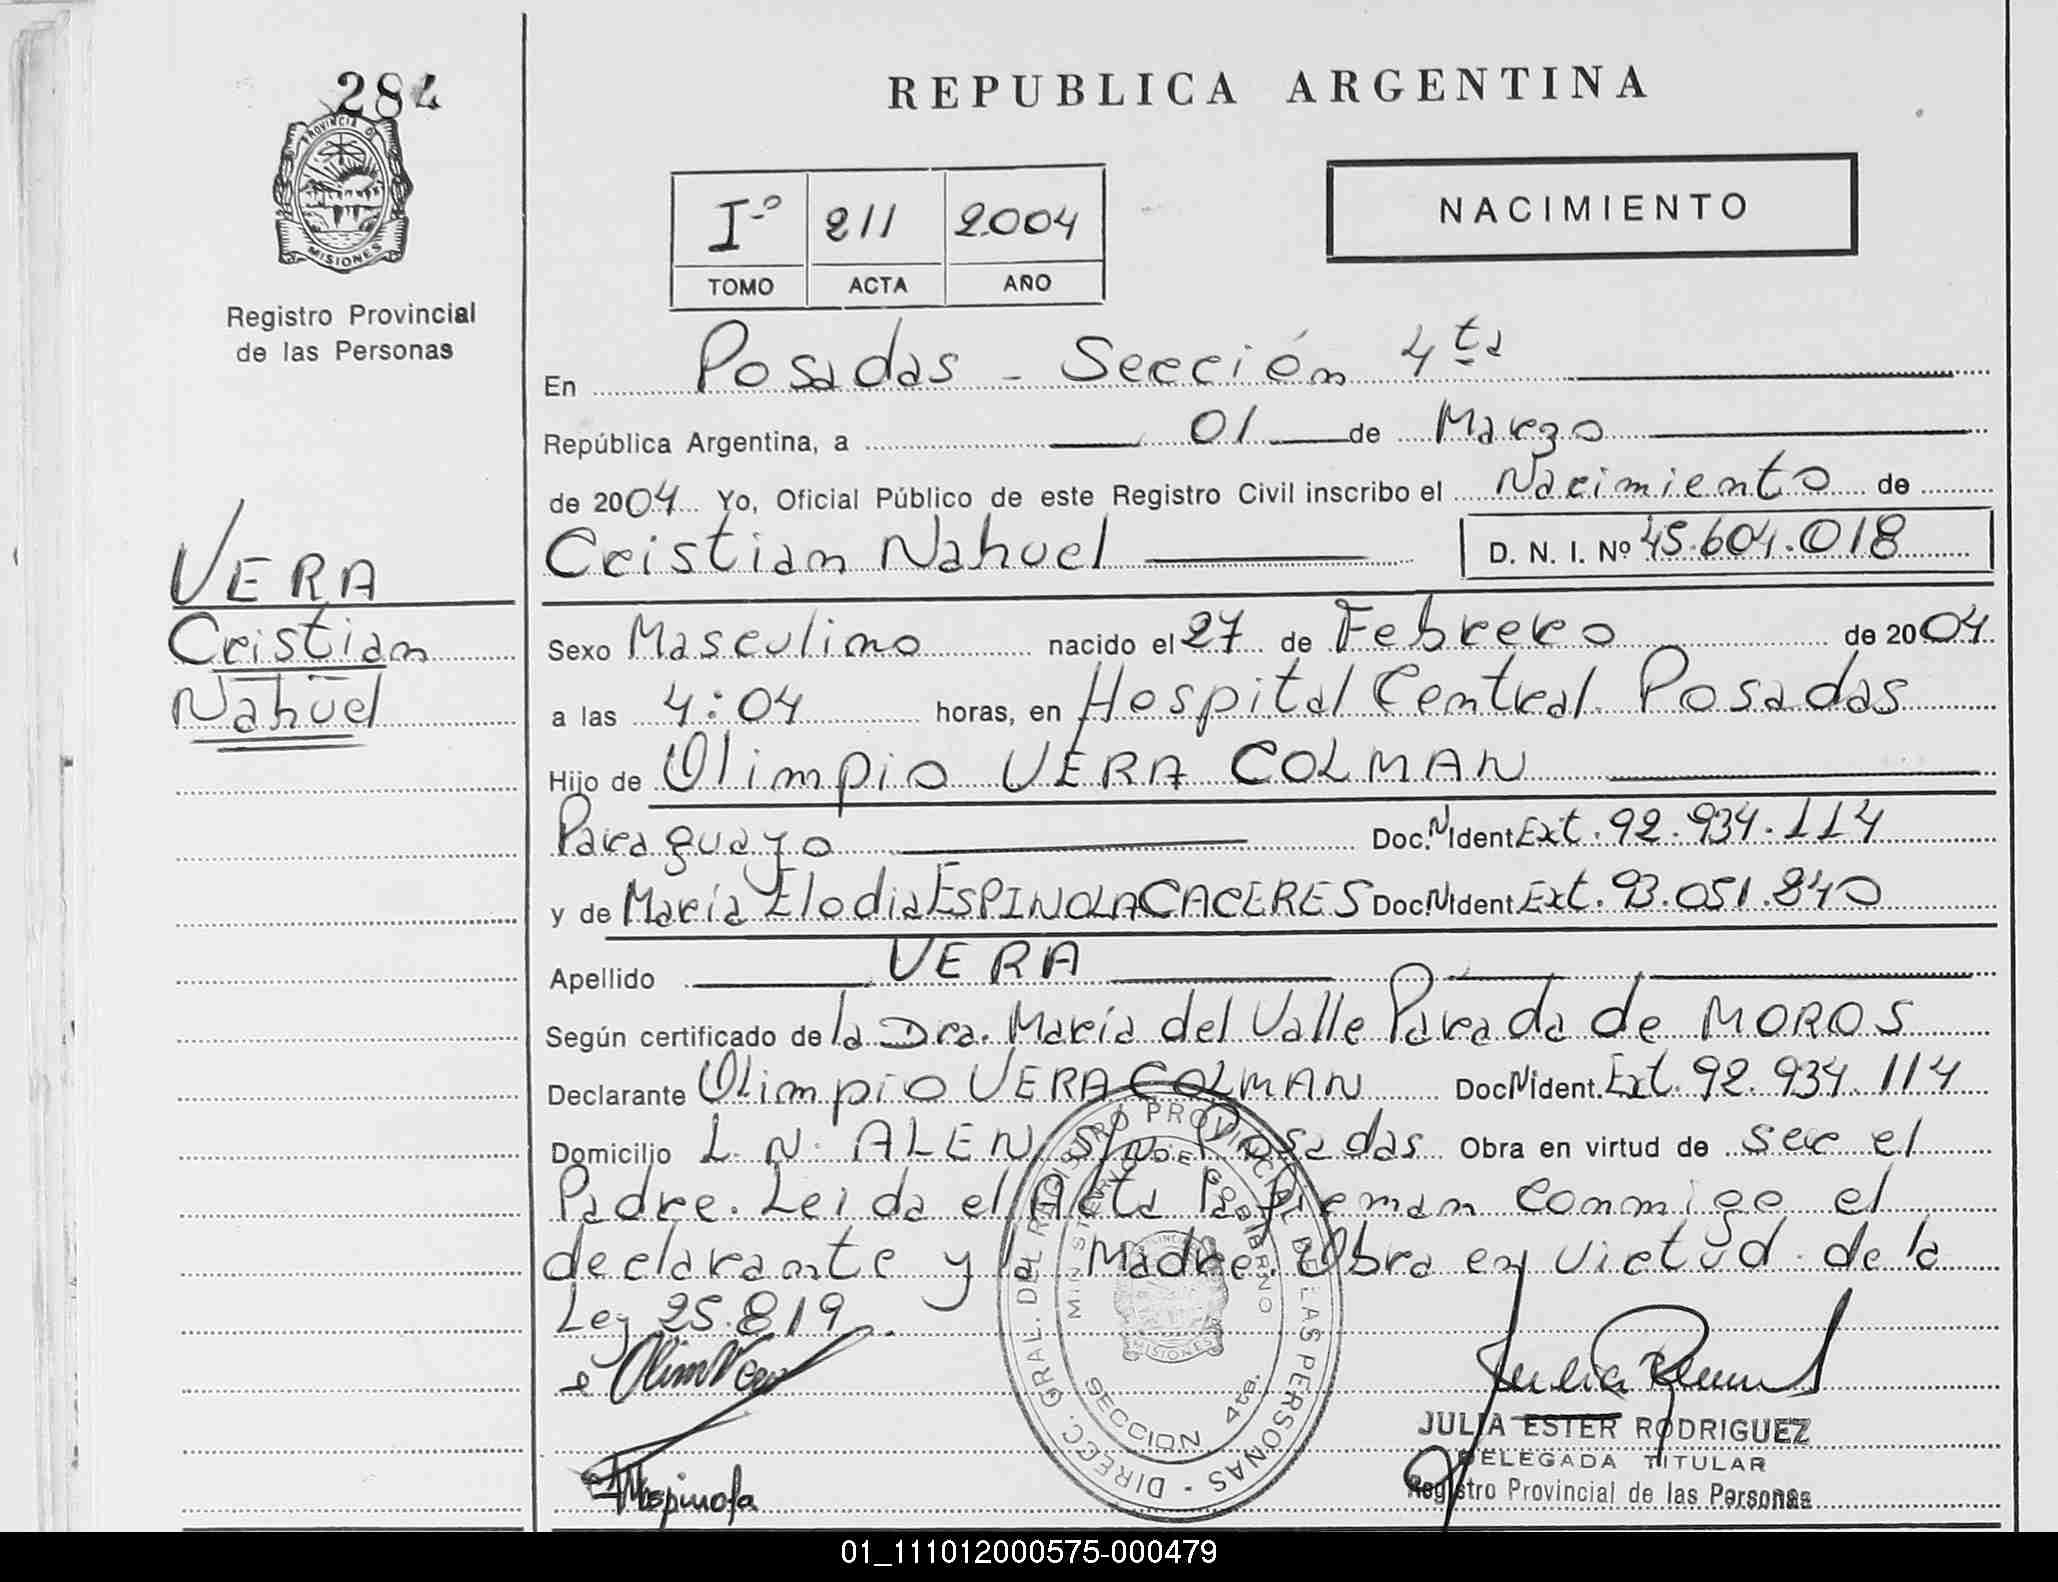 284
REPUBLICA ARGENTINA
PROVINCIA D
MISIONES
Registro Provincial
de las Personas
I-º 211 2004
TOMO ACTA AÑO
NACIMIENTO
En Posadas - Sección 4ta
República Argentina, a 01 de Marzo
de 2004 Yo, Oficial Público de este Registro Civil inscribo el Nacimiento de
Cristian Nahuel D. N. I. Nº 45.604.018
VERA
Cristian
Nahuel
Sexo Masculino nacido el 27 de Febrero de 2004
a las 4:04 horas, en Hospital Central Posadas
Hijo de Olimpio VERA COLMAN
Paraguayo Doc. N Ident Ext. 92.934.114
y de María Elodia ESPINOLA CACERES Doc N Ident. Ext. 93.051.840
Apellido VERA
Según certificado de la Dra. María del Valle Parada de MOROS
Declarante Olimpio VERA COLMAN Doc N ident. Ext. 92.934.114
Domicilio L. N. ALEN S/N. Posadas Obra en virtud de ser el
Padre. Leida el Acta la firman conmigo el
declarante y la Madre. Obra en virtud de la
Ley 25.819.
DIRECC. GRAL. DEL REGISTRO PROVINCIAL DE LAS PERSONAS -
MINISTERIO DE GOBIERNO
MISIONES
SECCION 4ta.
Olim Vera
Espinola
JULIA ESTER RODRIGUEZ
DELEGADA TITULAR
Registro Provincial de las Personas
01_111012000575-000479